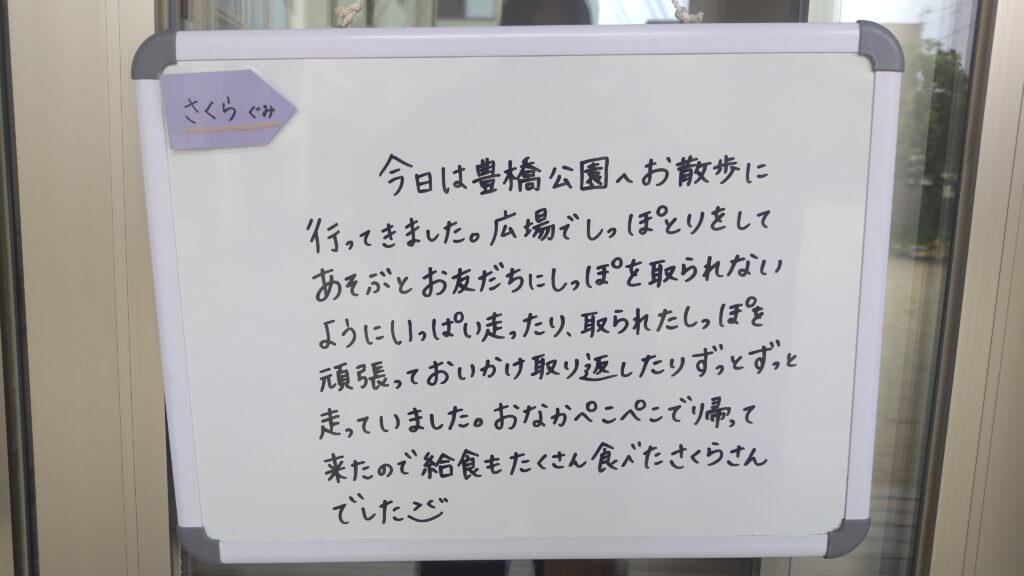 さくらぐみ
今日は豊橋公園へお散歩に
行ってきました。広場でしっぽとりをして
あそぶとお友だちにしっぽを取られない
ようにいっぱい走ったり、取られたしっぽを
頑張っておいかけ取り返したりずっとずっと
走っていました。おなかぺこぺこで帰って
来たので給食もたくさん食べたさくらさん
でした